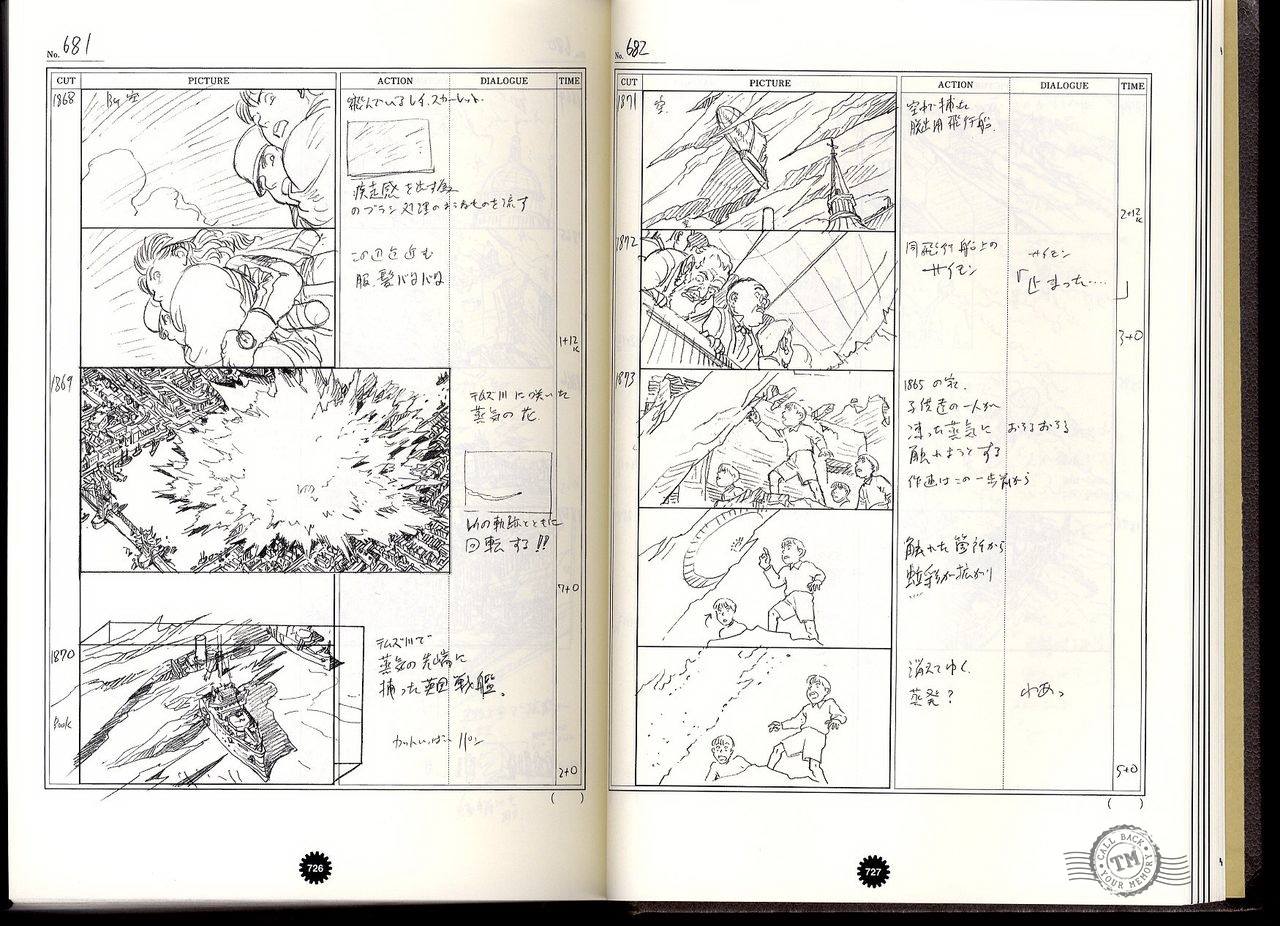 No. 681
CUT PICTURE ACTION DIALOGUE TIME
1868
BG 空
飛んでいるレイ、スカーレット.
疾走感を出す為
のブラシ処理の ものを流す
1+12
K
この辺 も
服、髪バタバタ
1869
テムズ川に咲いた
蒸気の花
レイの軌跡とともに
回転する!!
7+0
1870
Book
テムズ川で
蒸気の先端に
捕った英国戦艦。
カットいっぱい パン
2+0
( )
726
No. 682
CUT PICTURE ACTION DIALOGUE TIME
1871
空.
空中で捕った
脱出用飛行船.
2+12
K
1872
同飛行船上の
サイモン
サイモン
「止まった‥‥」
3+0
1873
1865の家.
子供達の一人が
凍った蒸気に おそるおそる
触れようとする
作画はこの一歩前から
触れた箇所から
虹彩が拡がり
消えてゆく.
蒸発?
わあっ
5+0
( )
727
CALL BACK
TM
YOUR MEMORY